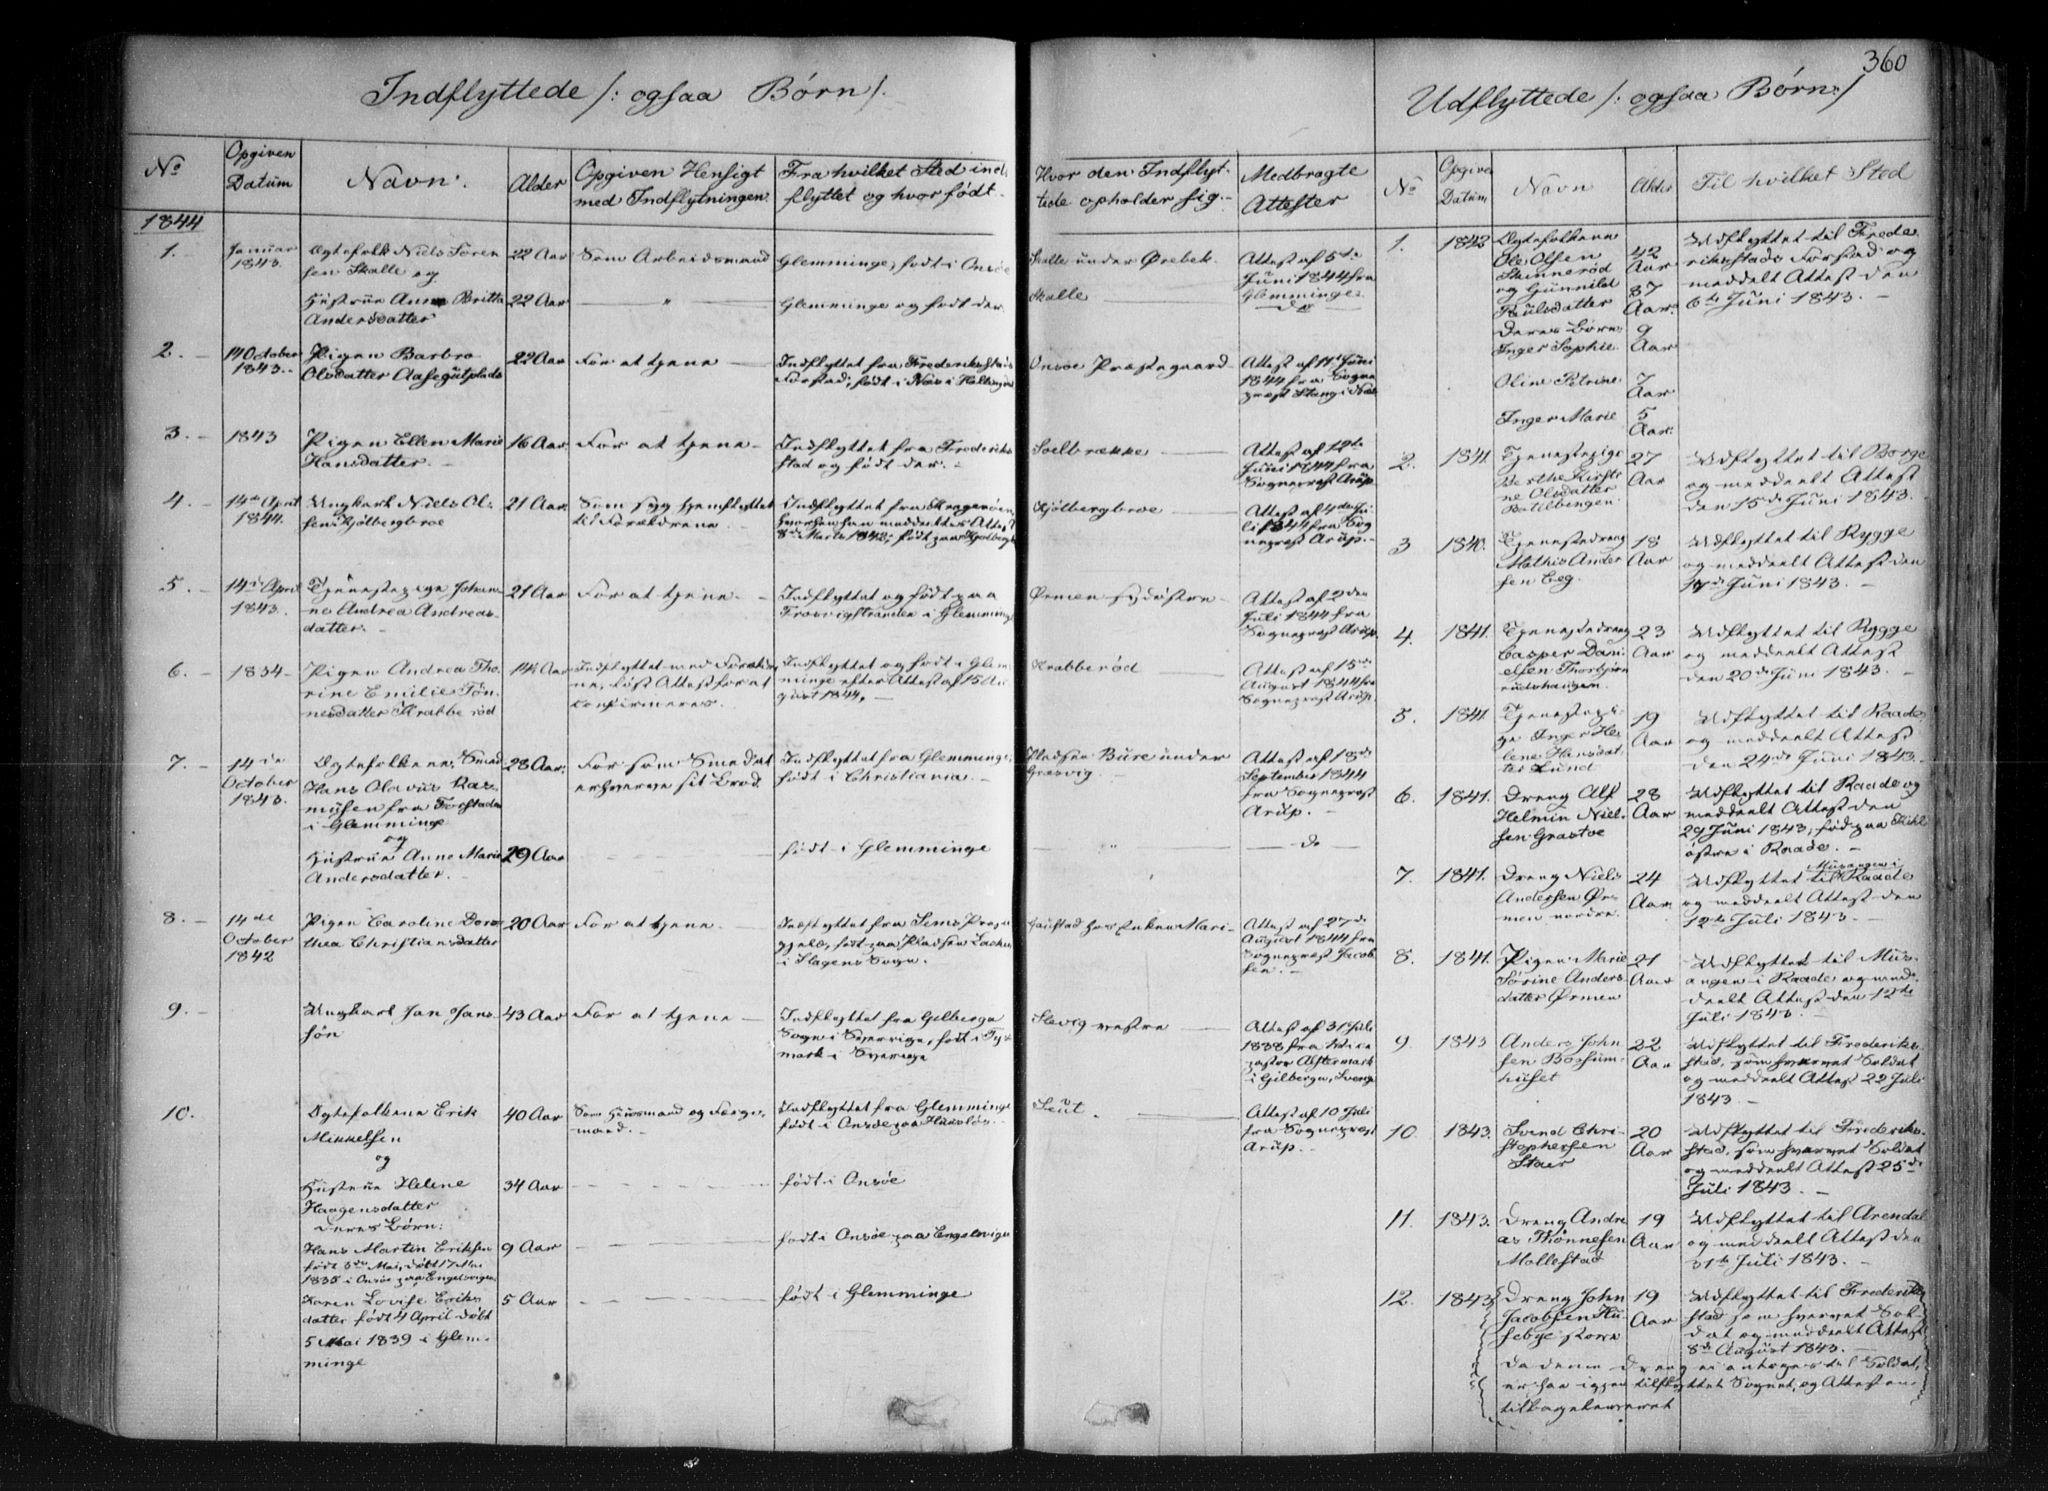 360
Indflyttede /: ogsaa Børn /.
No
Opgiven Datum
Navn.
Alder
Opgiven Hensigt med Indflytningen.
Fra hvilket Sted ind-
flyttet og hvor født.
Hvor den Indflyt-
tede opholder sig.
Medbragte
Attester
1844
1.
Januar
1843.
Ægtefolk Niels Søren
sen Skalle og
22 Aar
Som Arbeidsmand
Glemminge, født i Onsøe
Skalle under Ørebek.
Attest af 5te
Juni 1844 fra
Glemminge.
Hustrue Anne Britta
Andersdatter
22 Aar
"
Glemminge og født der
Skalle
do
2.
14 October
1843.
Pigen Barbro
Olsdatter
22 Aar
For at tjene
Indflyttet fra Frederikstads
Forstad, født i Næs i Hallingdal
Onsøe Præstegaard
Attest af 11te Juni
1844 fra Sogne
præst Stang i Næs
3.
1843
Pigen Ellen Marie
Hansdatter.
16 Aar
For at tjene
Indflyttet fra Frederik
stad og født der.
Soelbrække
Attest af 12te
Juni 1844 fra
Sognepræst Arup.
4.
14de April
1844.
Ungkarl Niels Ol-
sen Kjølbergbroe
21 Aar
Som syg hjemflyttet
til Forældrene
Indflyttet fra Kragerøen,
hvorhen han meddeeltes Attest
8de Marts 1842, født paa Kjølbergbr
Kjølbergbroe
Attest af 4de Ju-
li 1844 fra Sog
nepræst Arup.
5.
14de April
1843.
Tjenestepige Johan-
ne Andrea Andreas-
datter.
21 Aar
For at tjene.
Indflyttet og født paa
Trosvigstranden i Glemminge
Ørmen sydøstre
Attest af 2den
Juli 1844 fra
Sognepræst Arup.
6.
1834
Pigen Andrea Tho-
rine Emilie Tøn-
nesdatter Krabberød
14½ Aar
Indflyttet med Forældre
ne, løst Attest for at
confirmeres.
Indflyttet og født i Glem
minge efter Attest af 15 Au
gust 1844.
Krabberød
Attest af 15de
August 1844 fra
Sognepræst Arup.
7.
14de
October
1843.
Ægtefolkene, Smed
Hans Olavus Ras-
musen fra Forstaden
i Glemminge
og
28 Aar.
For som Smed at
erhverve sit Brød.
Indflyttet fra Glemminge,
født i Christiania.
Pladsen Bure under
Græsvig.
Attest af 18de
September 1844
fra Sognepræst
Arup.
Hustrue Anne Marie
Andersdatter.
29 Aar
født i Glemminge
"
do
8.
14de
October
1842
Pigen Caroline Doro
thea Christiansdatter
20 Aar
For at tjene
Indflyttet fra Sems Præste
gjeld, født paa Pladsen
i Slagens Sogn.
Gaustad hos Enken Mari-
Attest af 27de
August 1844 fra
Sognepræst Jacob
sen.
9.
Ungkarl Jan Jans-
søn
43 Aar
For at tjene
Indflyttet fra Gilberga
Sogn i Sverrige, født i
mark i Sverrige
Slevig vestre
Attest af 31 Juli
1838 fra Vice
pastor Alstermark
i Gilberga, Sverige
10.
Ægtefolkene Erik
Mikkelsen
og
40 Aar
Som Huusmand og Færge-
mand.
Indflyttet fra Glemminge
født i Onsøe paa
Leut.
Attest af 10 Juli
fra Sognepræst
Arup.
Hustrue Helene
Haagensdatter
Deres Børn:
34 Aar
født i Onsøe
Hans Martin Eriksen
født 3de Mai, døbt 17 Mai
1835 i Onsøe paa Engelsvigen
9 Aar
født i Onsøe paa Engelsvigen
Karen Lovise Eriks
datter født 4 April døbt
5 Mai 1839 i Glem-
minge
5 Aar
født i Glemminge
Udflyttede /: ogsaa Børn :/
No
Opgiven
Datum
Navn
Alder
Til hvilket Sted
1.
1843
Ægtefolkene
Ole Olsen
Skinnerød
og Gunnild
Paulsdatter
Deres Børn:
Inger Sophie
Oline Petrine
Inger Marie
42
Aar
37
Aar.
9
Aar
7
Aar
5
Aar.
Udflyttet til Frede
rikstads Forstad og
meddeelt Attest den
6te Juni 1843.
2.
1841
Tjenestepige
Berthe Kirsti-
ne Olsdatter
27
Aar
Udflyttet til Borge
og meddeelt Attest
den 15de Juni 1843.
3
1840.
Tjenestedreng
Mathis Ander
sen Eeg.
18
Aar
Udflyttet til Rygge
og meddeelt Attest den
17de Juni 1843.
4.
1841.
Tjenestedreng
Casper Dani-
elsen Thorbjørn
rødshaugen.
23
Aar
Udflyttet til Rygge
og meddeelt Attest
den 20de Juni 1843.
5.
1841
Tjenestepi-
ge Inger He-
lene Hansdat-
ter Lund
19
Aar
Udflyttet til Raade,
og meddeelt Attest
den 24de Juni 1843.
6.
1841.
Dreng Alf
Helmin Niel-
sen Grastve
28
Aar
Udflyttet til Raade og
meddeelt Attest den
29 Juni 1843, født paa
østre i Raade.
7.
1841.
Dreng Niels
Andersen Ør-
men nordre.
24
Aar
Musangen i
Udflyttet til Raade
og meddeelt Attest den
12te Juli 1843.
8.
1841.
Pigen Marie
Sørine Anders-
datter Ørmen
21
Aar
Udflyttet til Mus-
angen i Raade og med-
deelt Attest den 12te
Juli 1843.
9.
1843
Anders John
sen Boshum-
huset
22
Aar
Udflyttet til Frederik-
stad, som hvervet Soldat
og meddeelt Attest 22 Juli
1843.
10.
1843.
Svend Chri-
stophersen
Staer
20
Aar
Udflyttet til Frederik-
stad, som hvervet Soldat
og meddeelt Attest 25de
Juli 1843.
11.
1843.
Dreng Andre
as Thønnesen
Mollestad
19
Aar
Udflyttet til Arendal
og meddeelt Attest den
31te Juli 1843.
12.
1843
Dreng John
Jacobsen Hu-
sebye store
19
Aar
Udflyttet til Frederik
stad som hvervet Sol-
dat og meddeelt Attest
8de August 1843.
Da denne Dreng ei antoges til Soldat,
er han igjen tilflyttet Sognet, og Attesten
tilbageleveret